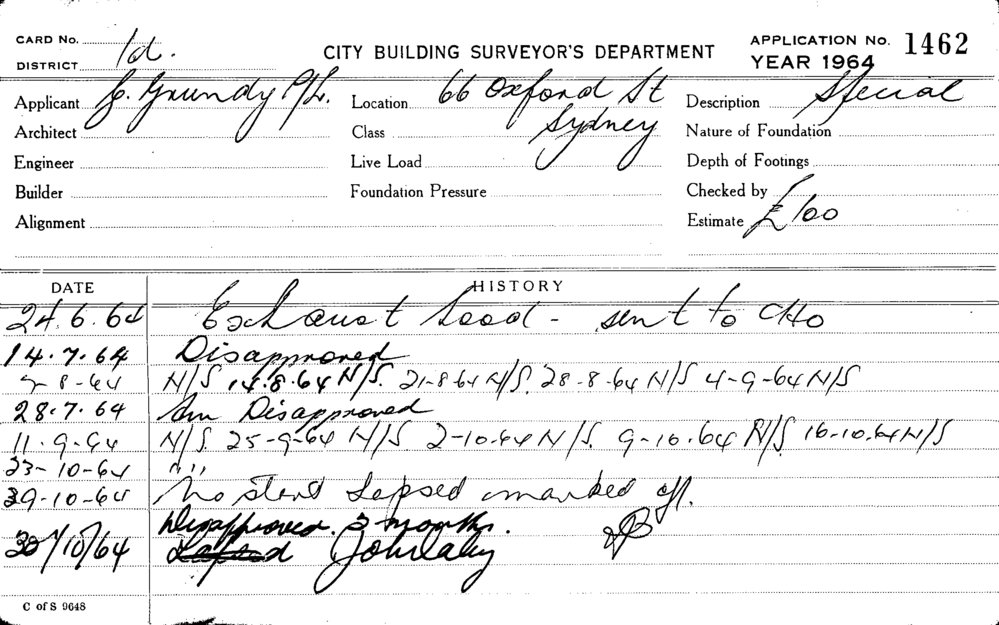 CARD No.
DISTRICT 1d.
CITY BUILDING SURVEYOR'S DEPARTMENT
APPLICATION No. 1462
YEAR 1964
Applicant J. Grundy P/L. Location 66 Oxford St Description Special
Architect Class Sydney Nature of Foundation
Engineer Live Load Depth of Footings
Builder Foundation Pressure Checked by
Alignment Estimate £100
DATE HISTORY
24.6.64 Exhaust hood - sent to CHO
14.7.64 Disapproved
8-64 N/S 14.8.64 N/S. 21-8-64 N/S. 28-8-64 N/S 4-9-64 N/S
28.7.64 Disapproved
11.9.64 N/S. 25-9-64 N/S 2-10-64 N/S. 9-10.64 N/S. 16-10.64 N/S
23-10-64 " "
29-10-64 No start Lapsed marked off.
Disapproved. 3 months.
30/10/64 Lapsed
C of S 9648